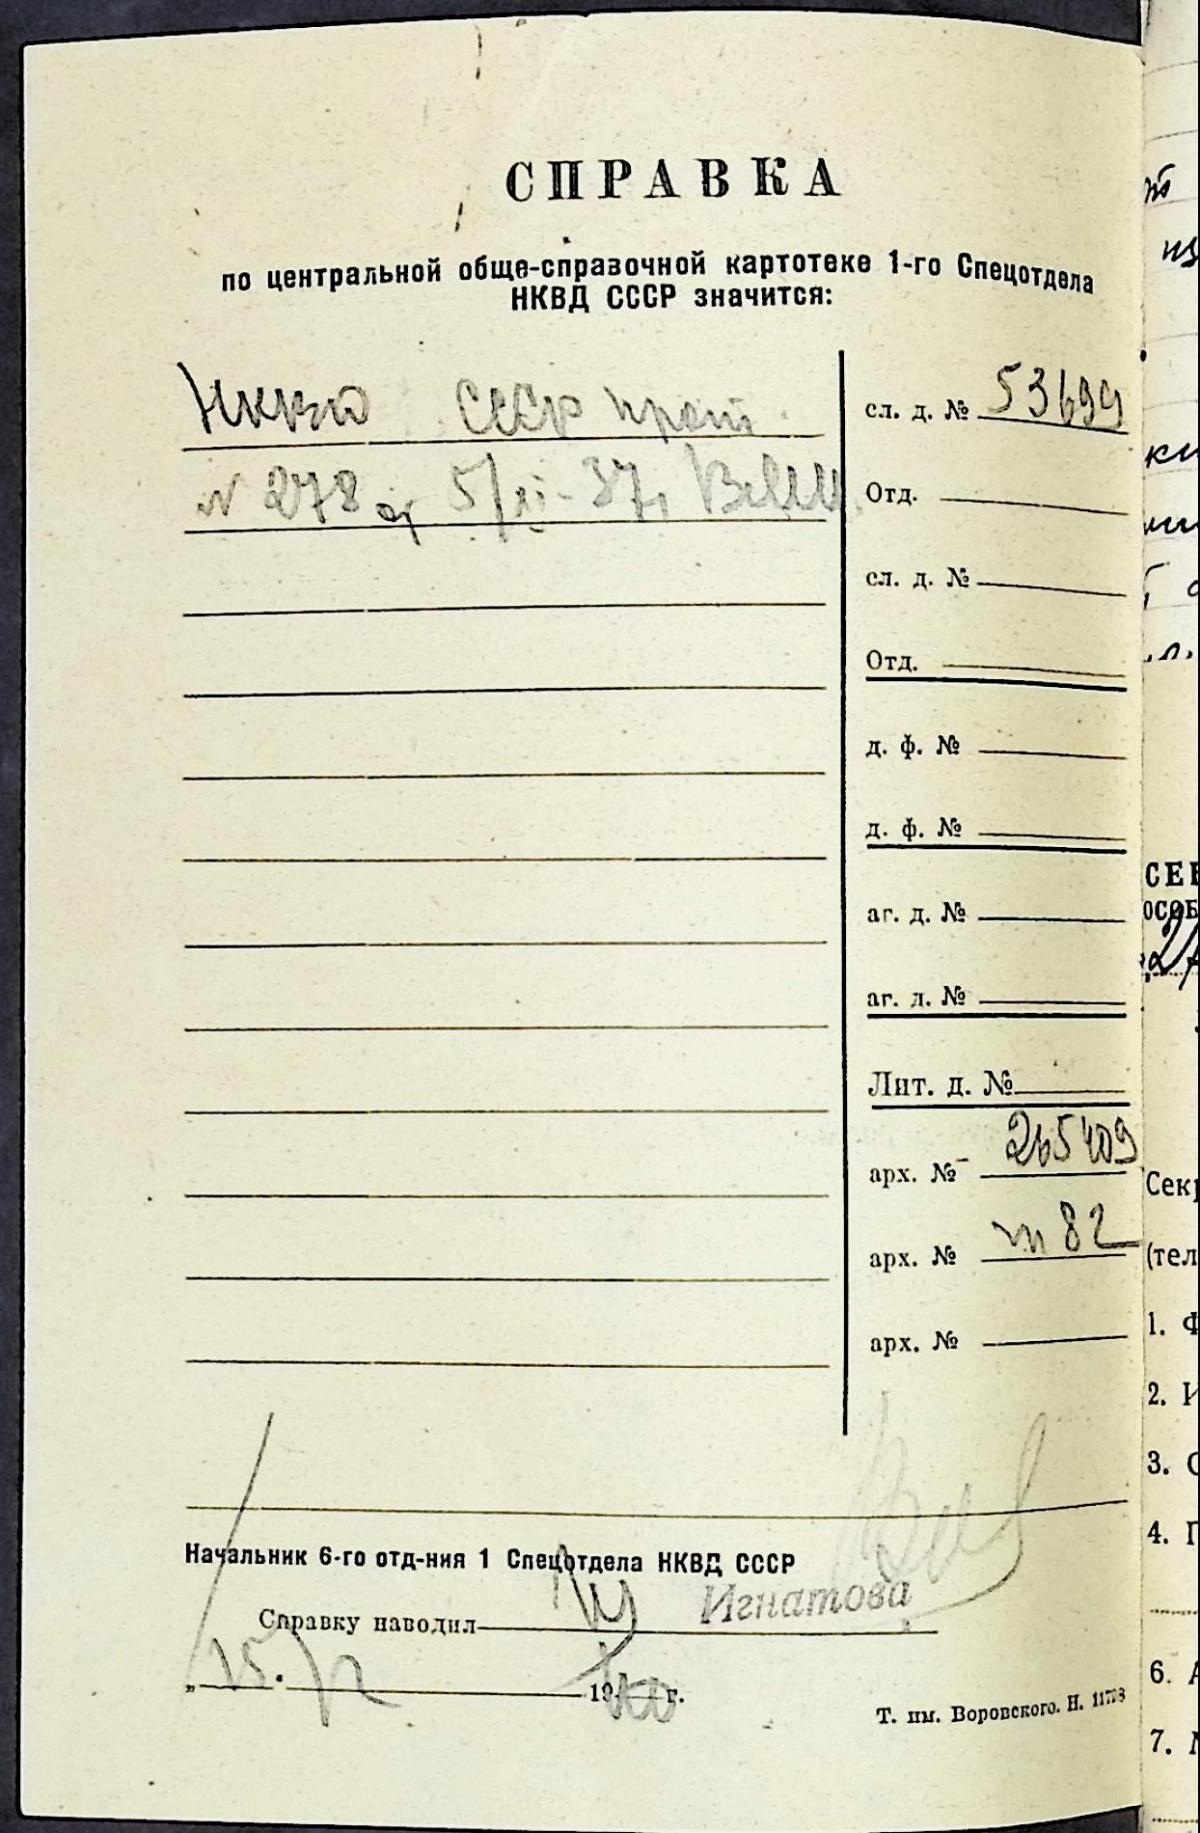 СПРАВКА
по центральной обще-справочной картотеке 1-го Спецотдела
НКВД СССР значится:
НКВД СССР прот.
N 278 от 5/XI-37,
сл. д. № 53699
Отд.
сл. д. №
Отд.
д. ф. №
д. ф. №
аг. д. №
аг. д. №
Лит. д. №
арх. № 265409
арх. № м 82
арх. №
Начальник 6-го отд-ния 1 Спецотдела НКВД СССР
Справку наводил Игнатова
„15. 19 г.
Т. им. Воровского. Н. 11798
СЕК
ОСОБ
Сек
(тел
1. Ф
2. И
3. С
4. П
6. А
7.